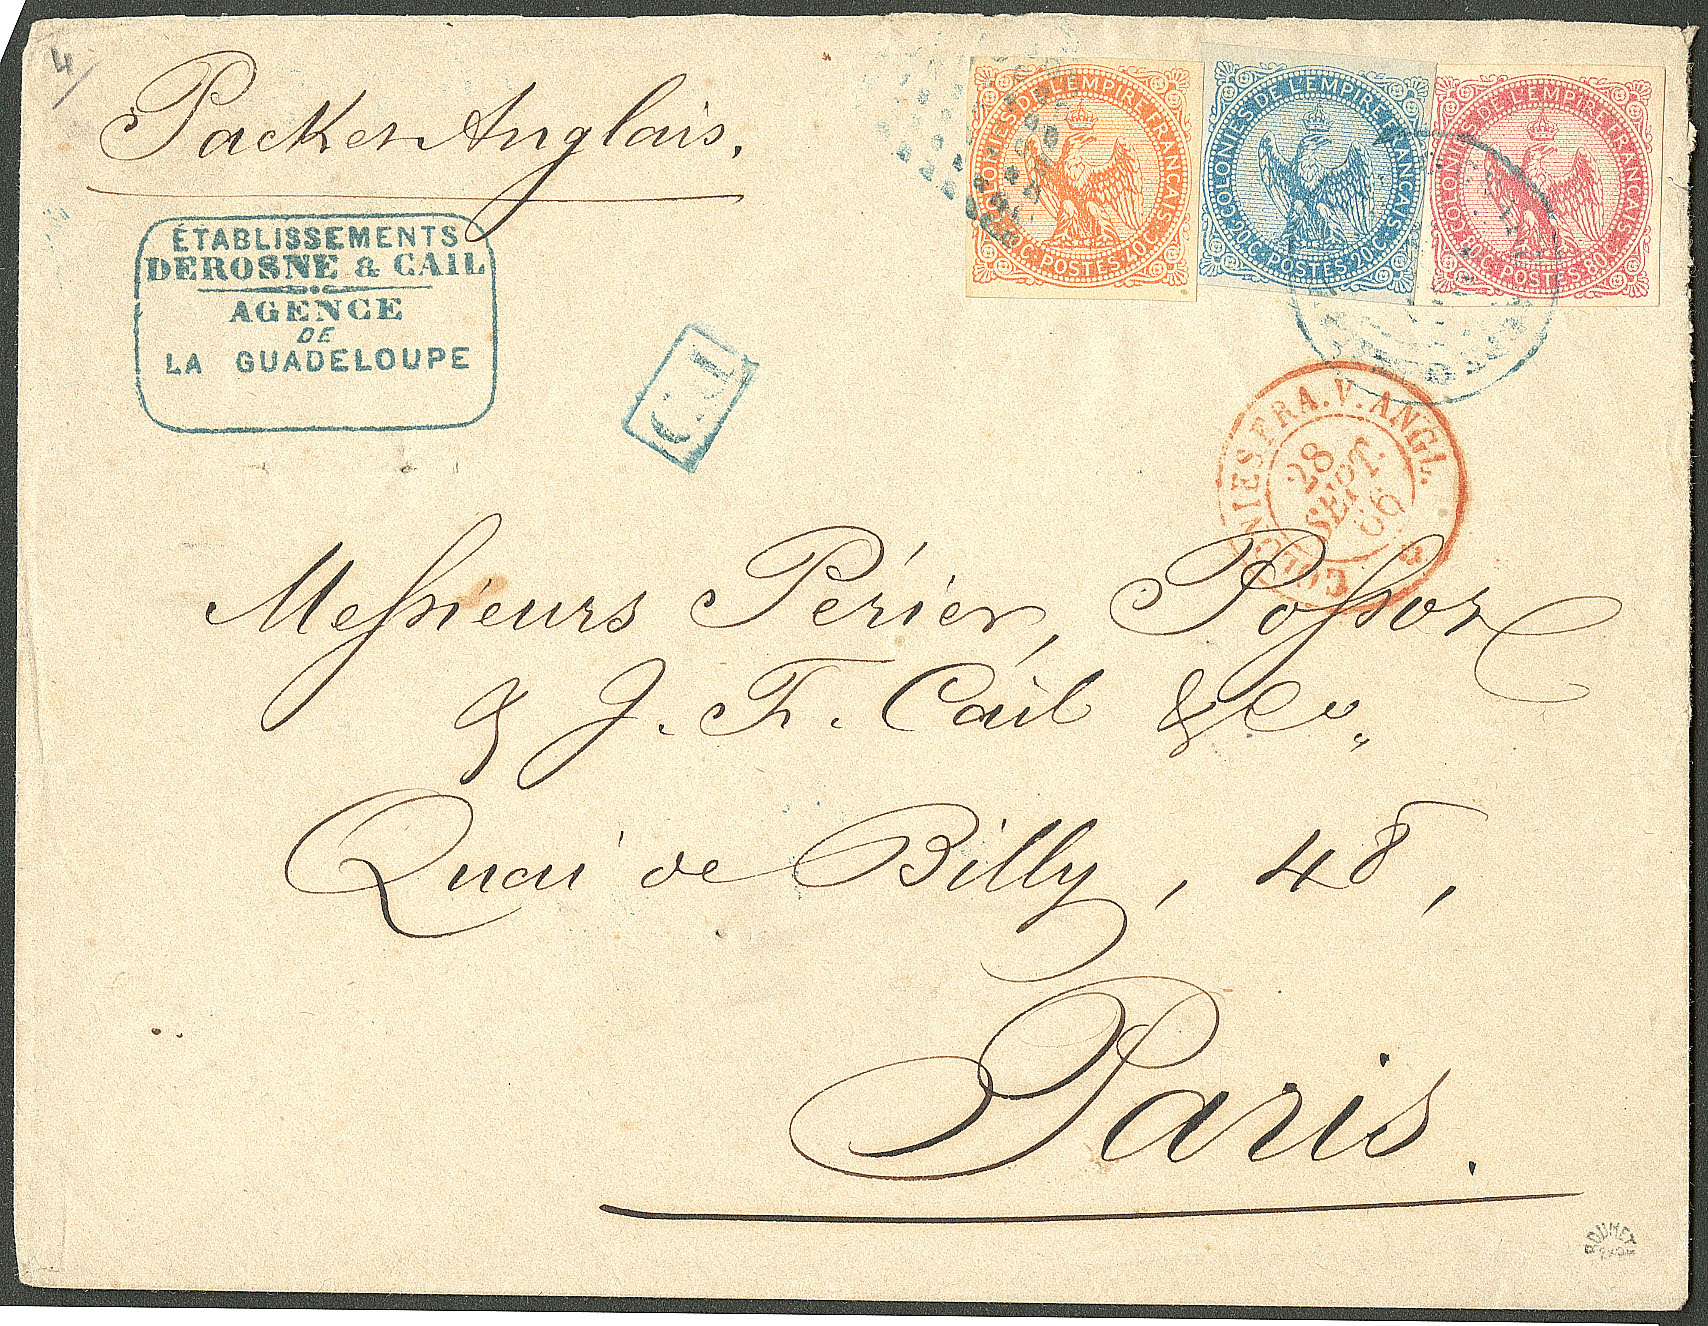 4/
Packet Anglais.
COLONIES DE L'EMPIRE FRANÇAIS
40C. POSTES. 40C.
COLONIES DE L'EMPIRE FRANÇAIS
20C. POSTES. 20C.
COLONIES DE L'EMPIRE FRANÇAIS
80C. POSTES. 80C.
ÉTABLISSEMENTS
DEROSNE & CAIL
AGENCE
DE
LA GUADELOUPE
COLONIES FRA. V. ANGL.
28
SEPT.
66
Messieurs Périer, Possoz
& J. F. Cail & Co.
Quai de Billy, 48,
Paris.
ROUMET